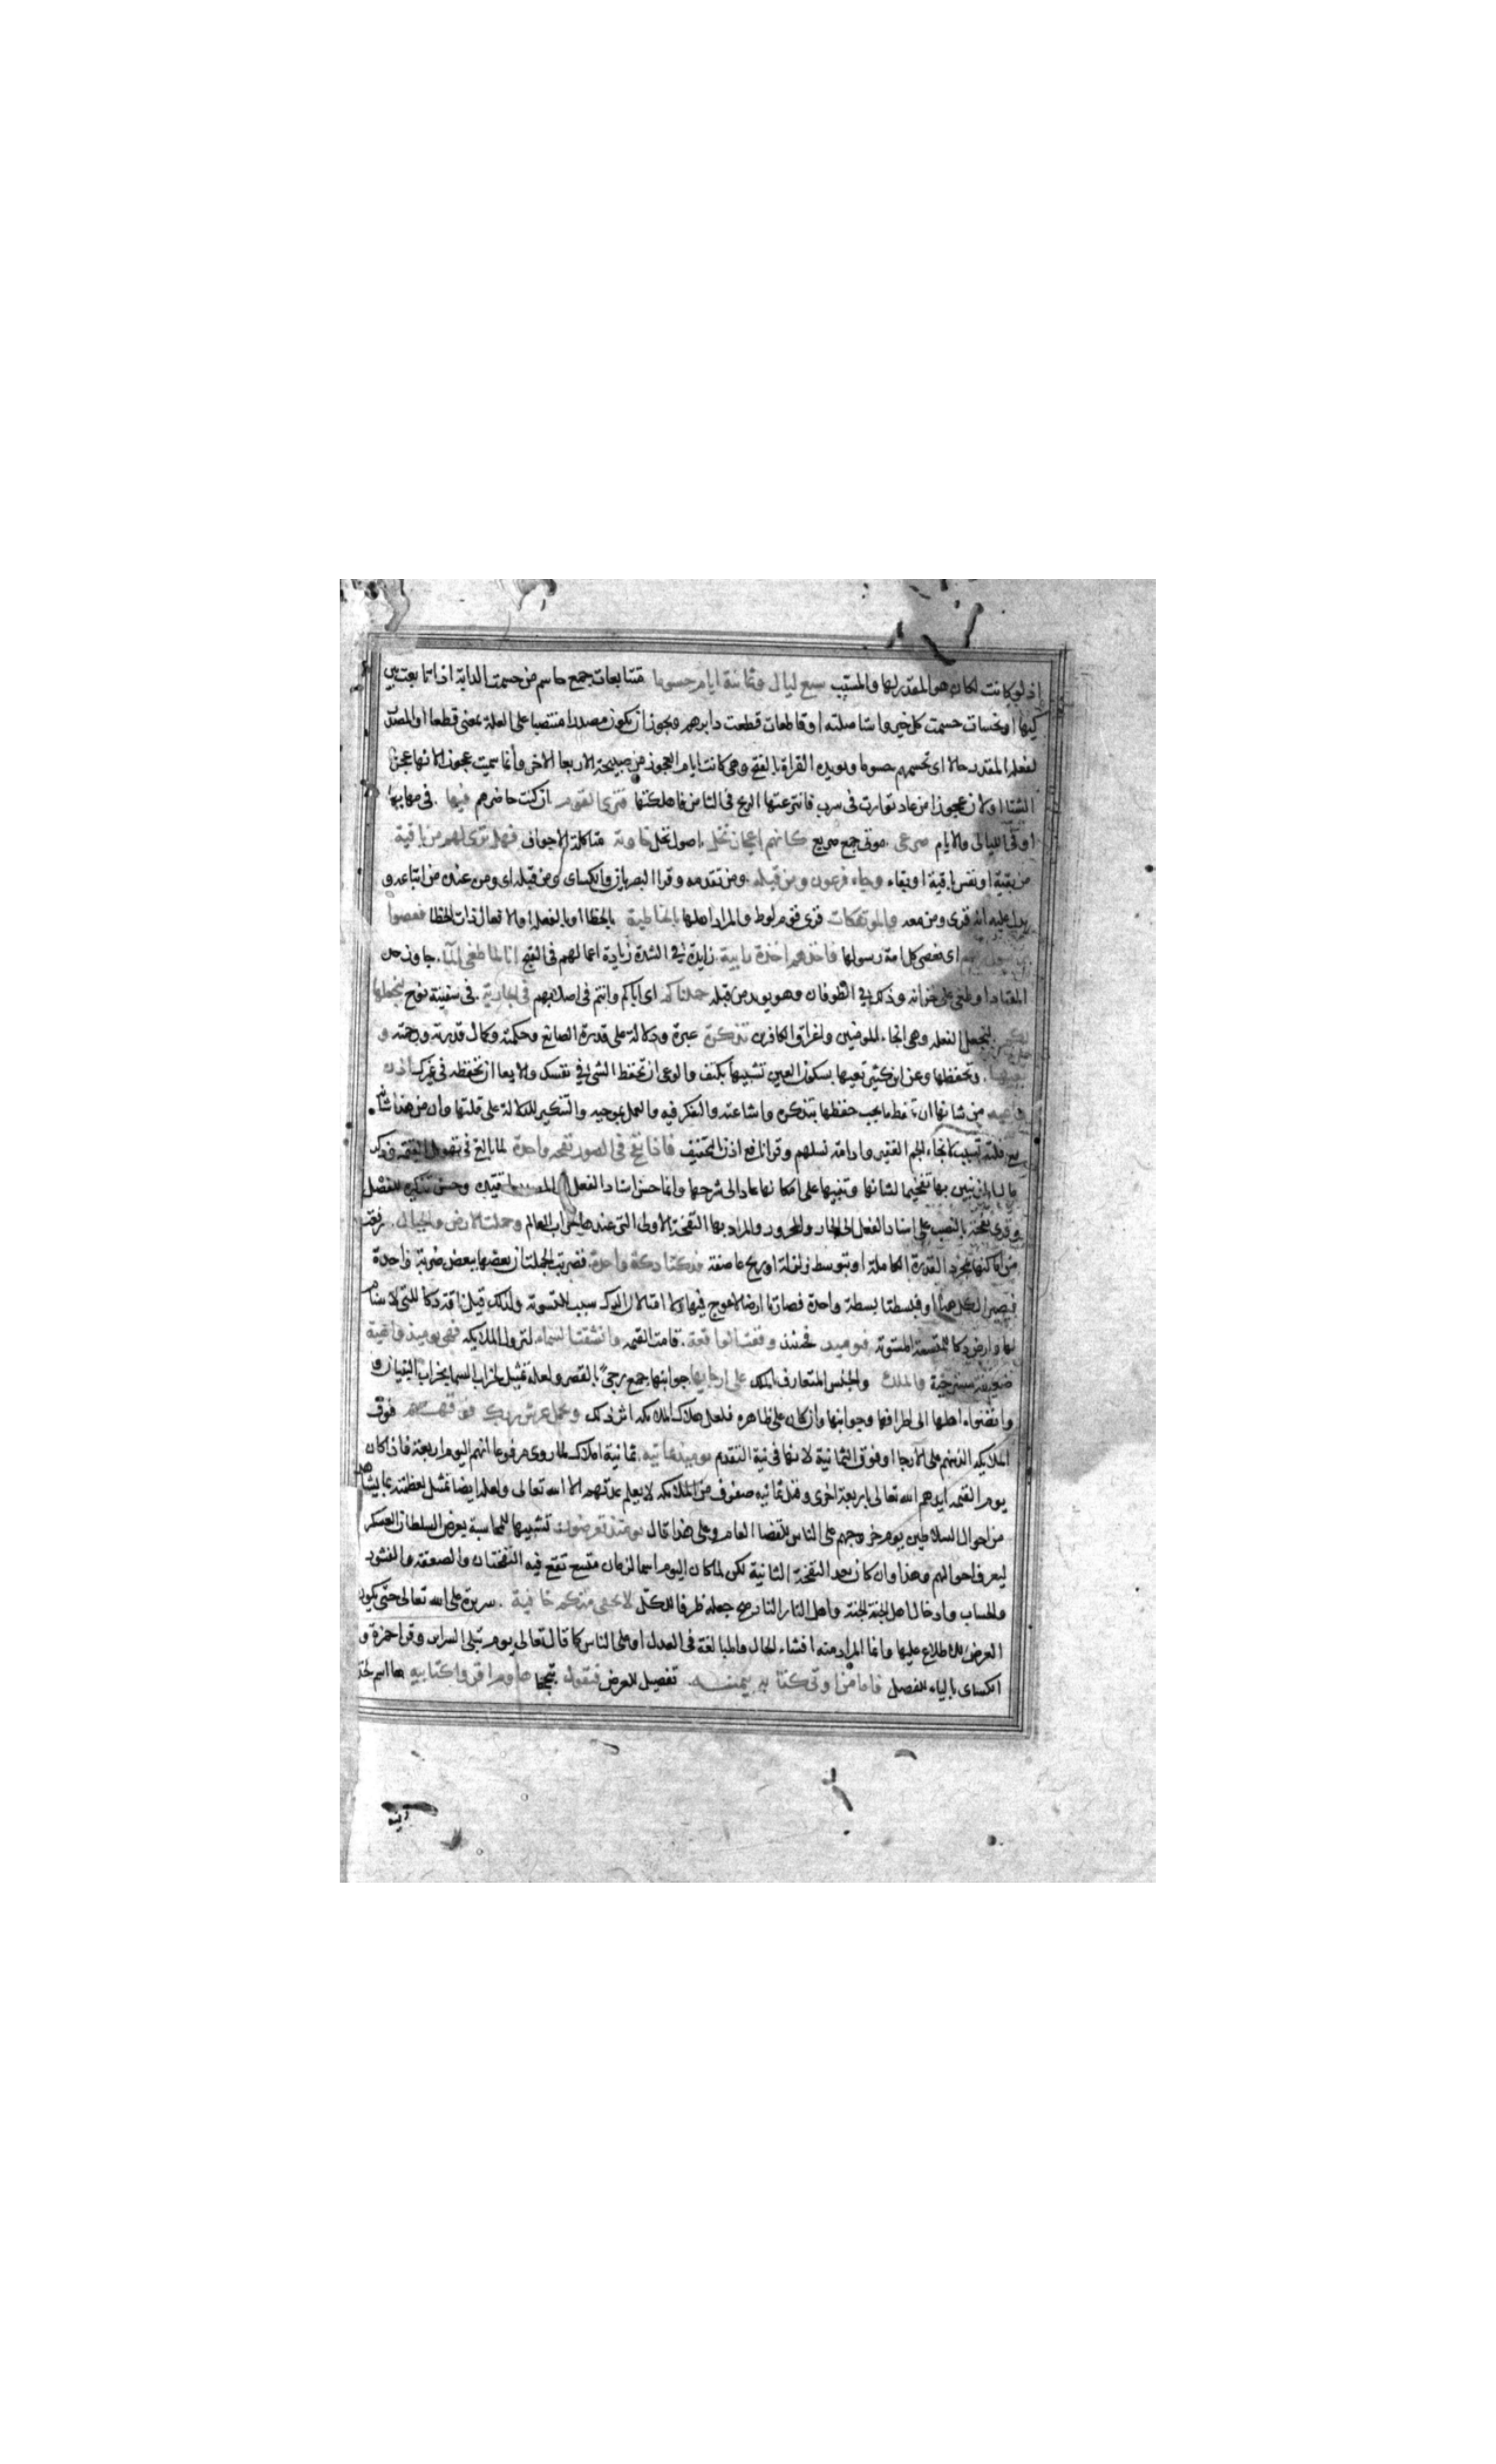 اذ لو كانت لكان هو المقدر لها والمسبب سبع ليال وثمانية ايام حسوما متتابعات جمع حاسم من حسمت الدابة اذا تابعت بين
كيها او نحسات حسمت كل خير واستاصلته او قاطعات قطعت دابرهم ويجوز ان يكون مصدرا منتصبا على العلة بمعنى قطعا او المصدر
لفعله المقدر حالا اى تحسمهم حسوما ويويده القراة بالفتح وهى كانت ايام العجوز من صبيحة الاربعا الاخر وانما سميت عجوزا لانها عجز
الشتا او لان عجوزا من عاد توارت فى سرب فانتزعتها الريح فى الثامن فاهلكتها فترى القوم ان كنت حاضرهم فيها فى مهابها
او فى الليالى والايام صرعى موتى جمع صريع كانهم اعجاز نخل اصول نخل خاوية متاكلة الاجواف فهل ترى لهم من باقية
من بقية او نفس باقية او بقاء وجاء فرعون ومن قبله ومن تقدمه وقرا البصريان والكساى ومن قبله اى ومن عنده من اتباعه و
يدل عليه انه قرى ومن معه والموتفكات قرى قوم لوط والمراد اهلها بالخاطية بالخطا او بالفعلة او الافعال ذات الخطا فعصوا
رسول ربهم اى فعصى كل امة رسولها فاخذهم اخذة رابية زايدة فى الشدة زيادة اعمالهم فى القبح انا لما طغى الما جاوز حده
المعتاد او طغى على خزانه وذلك فى الطوفان وهو يويد من قبله حملناكم اى اباكم وانتم فى اصلابهم فى الجارية فى سفينة نوح لنجعلها
لكم لنجعل الفعلة وهى انجاء المومنين واغراق الكافرين تذكرة عبرة ودلالة على قدرة الصانع وحكمته وكمال قدرته ورحمته و
تعيها وتحفظها وعن ابن كثير تعيها بسكون العين تشبيها بكتف والوعى ان تحفظ الشى فى نفسك والايعا ان تحفظه فى غيرك اذن
واعية من شانها ان تحفظ ما يجب حفظها بتذكره واشاعته والتفكر فيه والعمل بموجبه والتنكير للدلالة على قلتها وان من هذا شانه
مع قلته تسبب لانجاء الجم الغفير وادامة نسلهم وقرا نافع اذن بالتخفيف فاذا نفخ فى الصور نفخة واحدة لما بالغ فى تهويل القيمة وذكر
مال المكذبين بها تفخيما لشانها وتنبيها على امكانها عاد الى شرحها وانما حسن اسناد الفعل الى المصدر لتقييده وحسن تذكيره للفصل
وقرى نفخة بالنصب على اسناد الفعل الى الجار والمجرور والمراد بها النفخة الاولى التى عندها خراب العالم وحملت الارض والجبال رفعت
من اماكنها بمجرد القدرة الكاملة او بتوسط زلزلة او ريح عاصفة فدكتا دكة واحدة فضربت الجملتان بعضها ببعض ضربة واحدة
فيصير الكل هباء او فبسطتا بسطة واحدة فصارتا ارضا لا عوج فيها ولا امتا لان الدك سبب للتسوية ولذلك قيل ناقة دكا للتى لا سنام
لها وارض دكا للمتسعة المستوية فيوميذ فحينيذ وقعت الواقعة قامت القيمة وانشقت السماء لنزول الملايكه فهى يوميذ واهية
ضعيفة مسترخية والملك والجنس المتعارف بالملك على ارجايها جوانبها جمع رجى بالقصر ولعله تمثيل لخراب السما بخراب البنيان و
وانضواء اهلها الى اطرافها وجوانبها وان كان على ظاهره فلعل هلاك الملايكة اثر ذلك ويحمل عرش ربك فوقهم فوق
الملايكه الذينهم على الارجا او فوق الثمانية لانها فى نية التقدم يوميذ ثمانية ثمانية املاك لما روى مرفوعا انهم اليوم اربعة فاذا كان
يوم القيمة ايدهم الله تعالى باربعة اخرى وقيل ثمانيه صفوف من الملايكه لا يعلم عدتهم الا الله تعالى ولعله ايضا تمثيل لعظمته بما يشاهد
من احوال السلاطين يوم خروجهم على الناس للقضا العام وعلى هذا قال يومئذ تعرضون تشبيها للمحاسبة بعرض السلطان العسكر
ليعرف احوالهم وهذا وان كان بعد النفخة الثانية لكن لما كان اليوم اسما لزمان متسع تقع فيه النفختان والصعقة والنشور
والحساب وادخال اهل الجنة الجنة واهل النار النار صح جعله ظرفا للكل لا تخفى منكم خافية سريرة على الله تعالى حتى يكون
العرض للاطلاع عليها وانما المراد منه افشاء الحال والمبالغة فى العدل او على الناس كما قال تعالى يوم تبلى السراير وقرا حمزة و
الكساى بالياء للفصل فاما من اوتى كتابه بيمينه تفصيل للعرض فيقول تبجحا هاوم اقروا كتابيه ها اسم لخذ